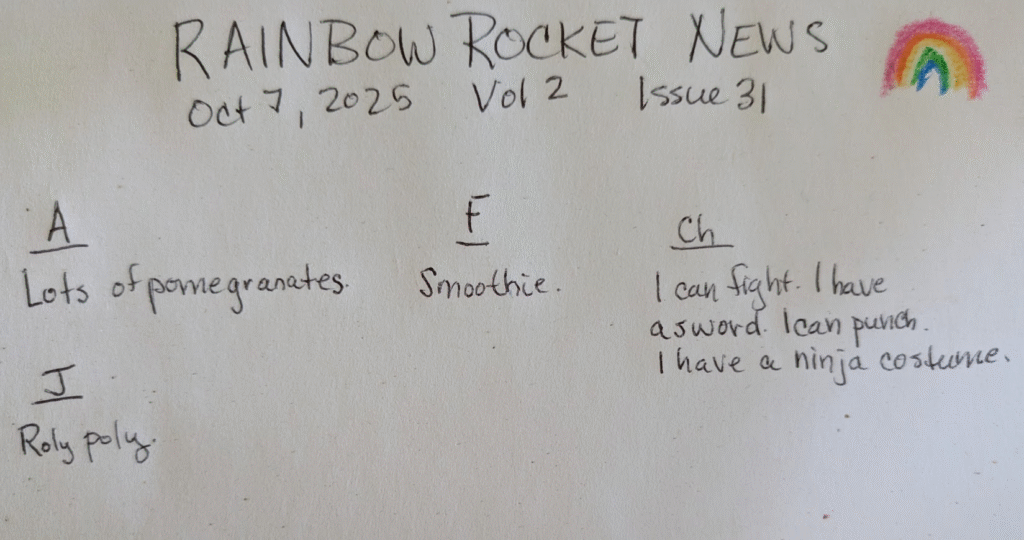 RAINBOW ROCKET NEWS
Oct 7, 2025 Vol 2 Issue 31
A
Lots of pomegranates.
J
Roly poly.
F
Smoothie.
Ch
I can fight. I have
a sword. I can punch.
I have a ninja costume.